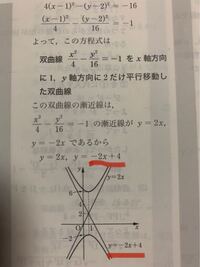 4(x−1)²−(y−2)²=−16
(x−1)²/4 − (y−2)²/16 = −1
よって，この方程式は
双曲線 x²/4 − y²/16 = −1 を x 軸方向
に 1，y 軸方向に 2 だけ平行移動し
た双曲線
この双曲線の漸近線は，
x²/4 − y²/16 = −1 の漸近線が y=2x,
y=−2x であるから
y=2x, y=−2x+4
y
y=2x
6
2
−2
O
1
x
y=−2x+4